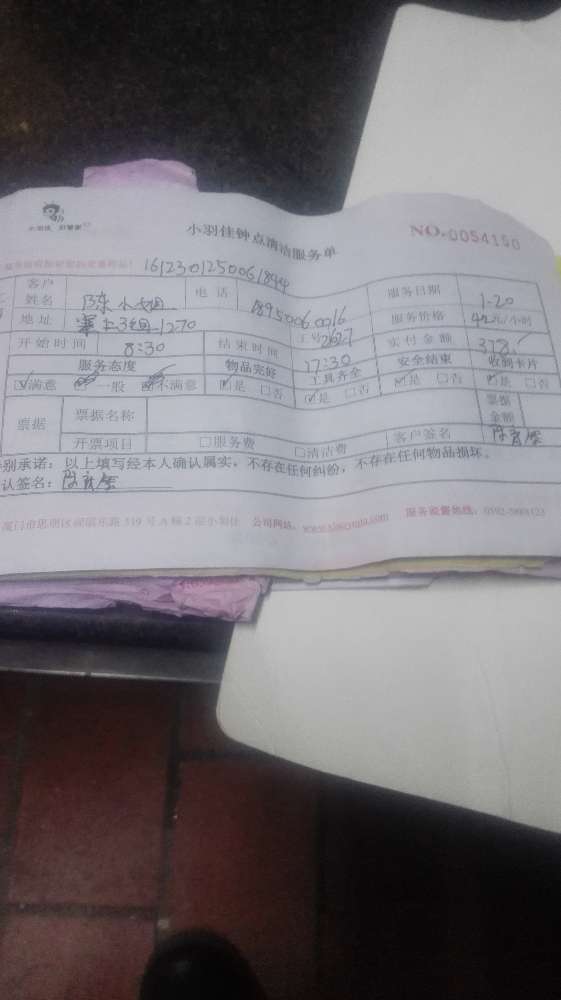 小羽佳钟点清洁服务单
NO.0054150
1612301250061844
客户姓名 陈小姐 电话 18950060016 服务日期 1-20
地址 上3组1270 工号2627 服务价格 42元/小时
开始时间 8:30 结束时间 17:30 实付金额 378.
服务态度 物品完好 工具齐全 安全结束 收到卡片
满意 一般 不满意 是 否 是 否 是 否 是 否
票据 票据名称 票据金额
开票项目 服务费 清洁费 客户签名
别承诺：以上填写经本人确认属实，不存在任何纠纷，不存在任何物品损坏。
认签名：
519号A幢2层小羽佳 公司网站：www.xiaoyujia.com 服务监督热线：